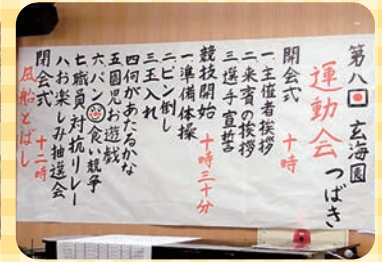 第八回 玄海園 つばき
運動会
開会式 十時
一.主位者挨拶
二.来賓の挨拶
三.選手宣誓
競技開始 十時三十分
一.準備体操
二.ピン倒し
三.玉入れ
四.何があたるかな
五.園児お遊戯
六.パン食い競争
七.職員対抗リレー
八.お楽しみ抽選会
閉会式 十二時
風船とばし